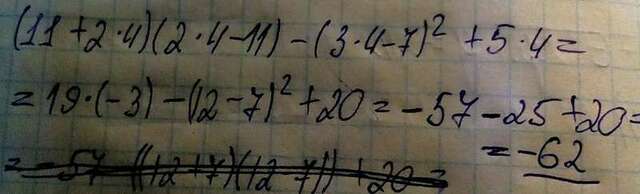 (11+2·4)(2·4-11)-(3·4-7)²+5·4=
=19·(-3)-(12-7)²+20=-57-25+20=
=-62
=-57-((12+7)(12-7))+20=